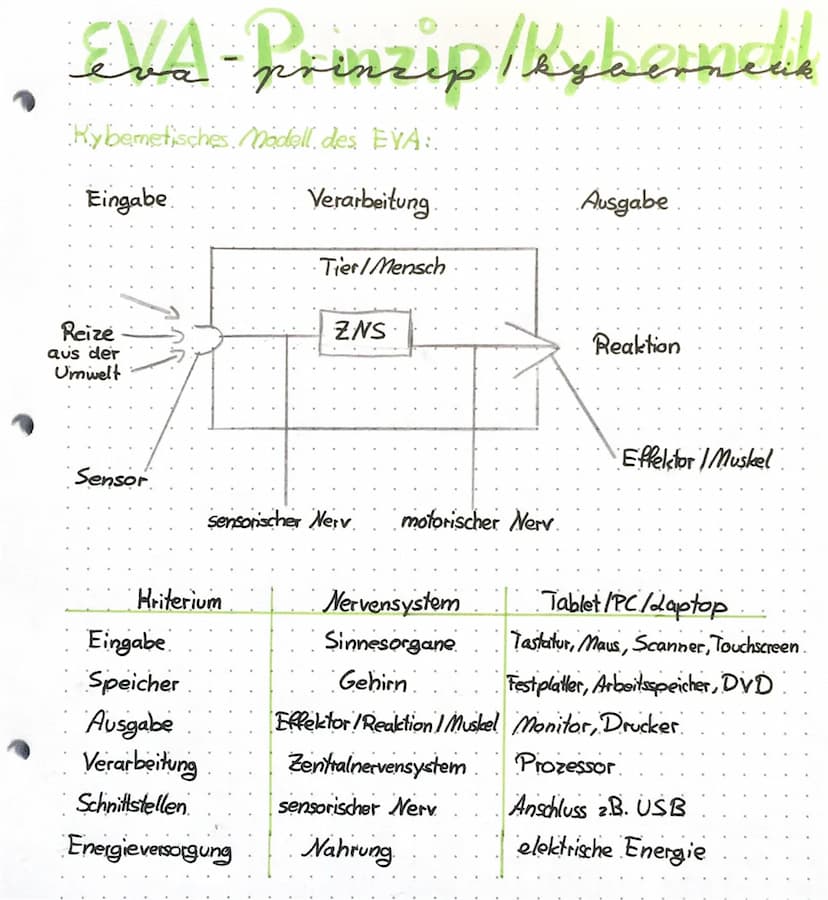 EVA-Prinzip/Kybernetik
eva-prinzip/kybernetik
Kybernetisches Modell des EVA:
Eingabe Verarbeitung Ausgabe
Tier/Mensch
ZNS
Reize
aus der
Umwelt
Reaktion
Effektor/Muskel
Sensor
sensorischer Nerv motorischer Nerv
Kriterium Nervensystem Tablet/PC/Laptop
Eingabe Sinnesorgane Tastatur, Maus, Scanner, Touchscreen
Speicher Gehirn Festplatter, Arbeitsspeicher, DVD
Ausgabe Effektor/Reaktion/Muskel Monitor, Drucker
Verarbeitung Zentralnervensystem Prozessor
Schnittstellen sensorischer Nerv Anschluss z.B. USB
Energieversorgung Nahrung elektrische Energie